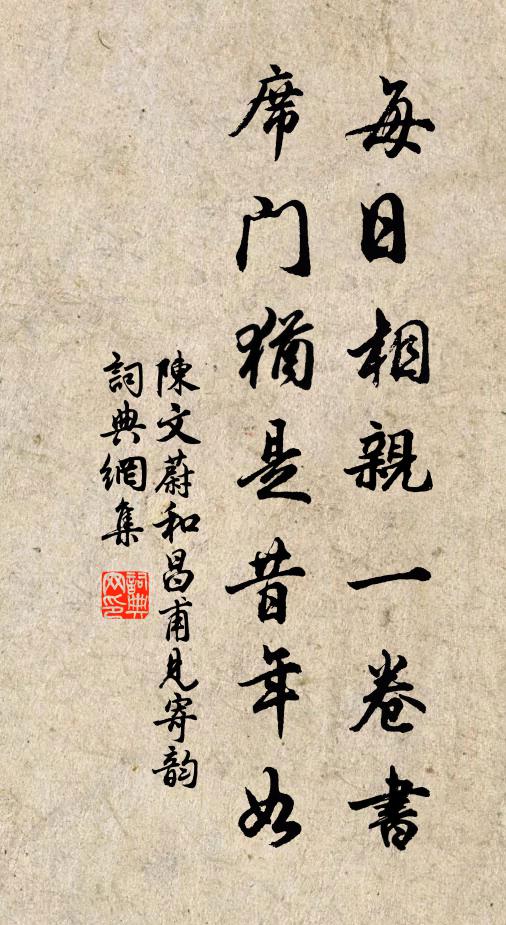 每日相親一卷書
席門猶是昔年如
陳文蔚和昌甫見寄韵
詞典網集
詞典
网印